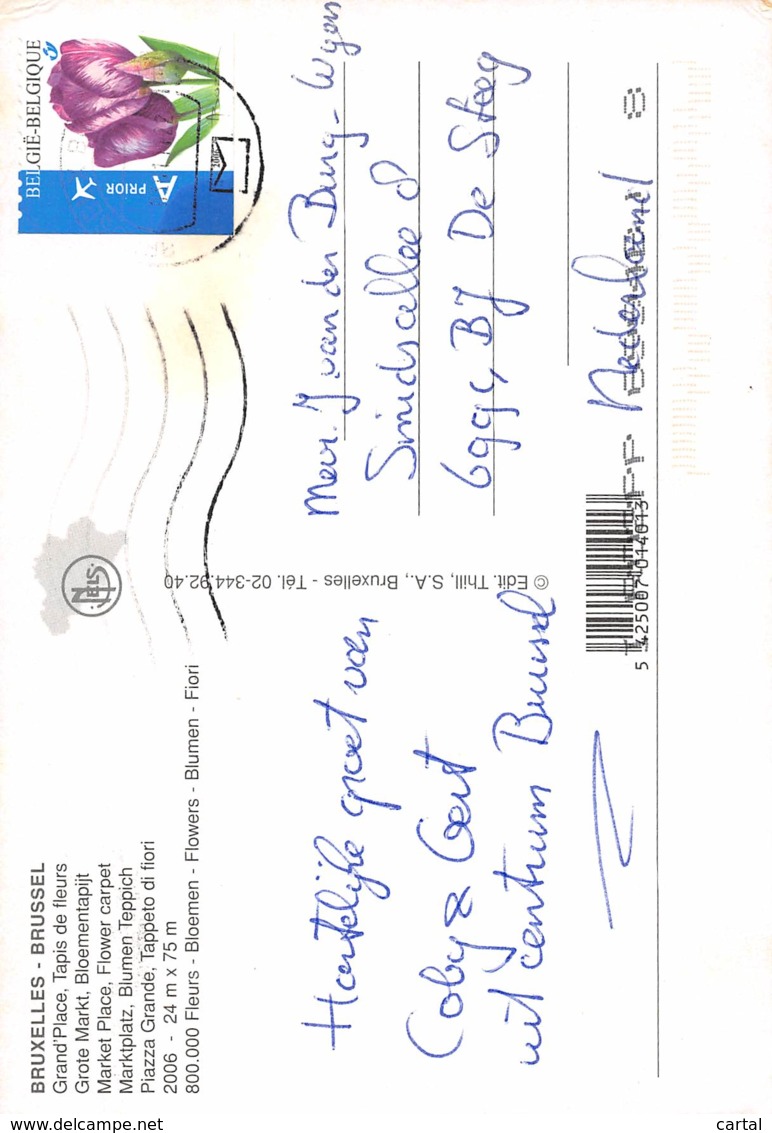 BRUXELLES - BRUSSEL
Grand'Place, Tapis de fleurs
Grote Markt, Bloementapijt
Market Place, Flower carpet
Marktplatz, Blumen Teppich
Piazza Grande, Tappeto di fiori
2006 - 24 m x 75 m
800.000 Fleurs - Bloemen - Flowers - Blumen - Fiori
Hartelijke groet van
Coby & Gert
uit centrum Brussel
NELS
© Edit. Thill, S.A., Bruxelles - Tél. 02-344.92.40
BELGIË-BELGIQUE
A PRIOR
2006
Mevr. J. van den Burg-
8
6991 BJ De Steeg
Nederland
5 425007 014013
www.delcampe.net
cartal